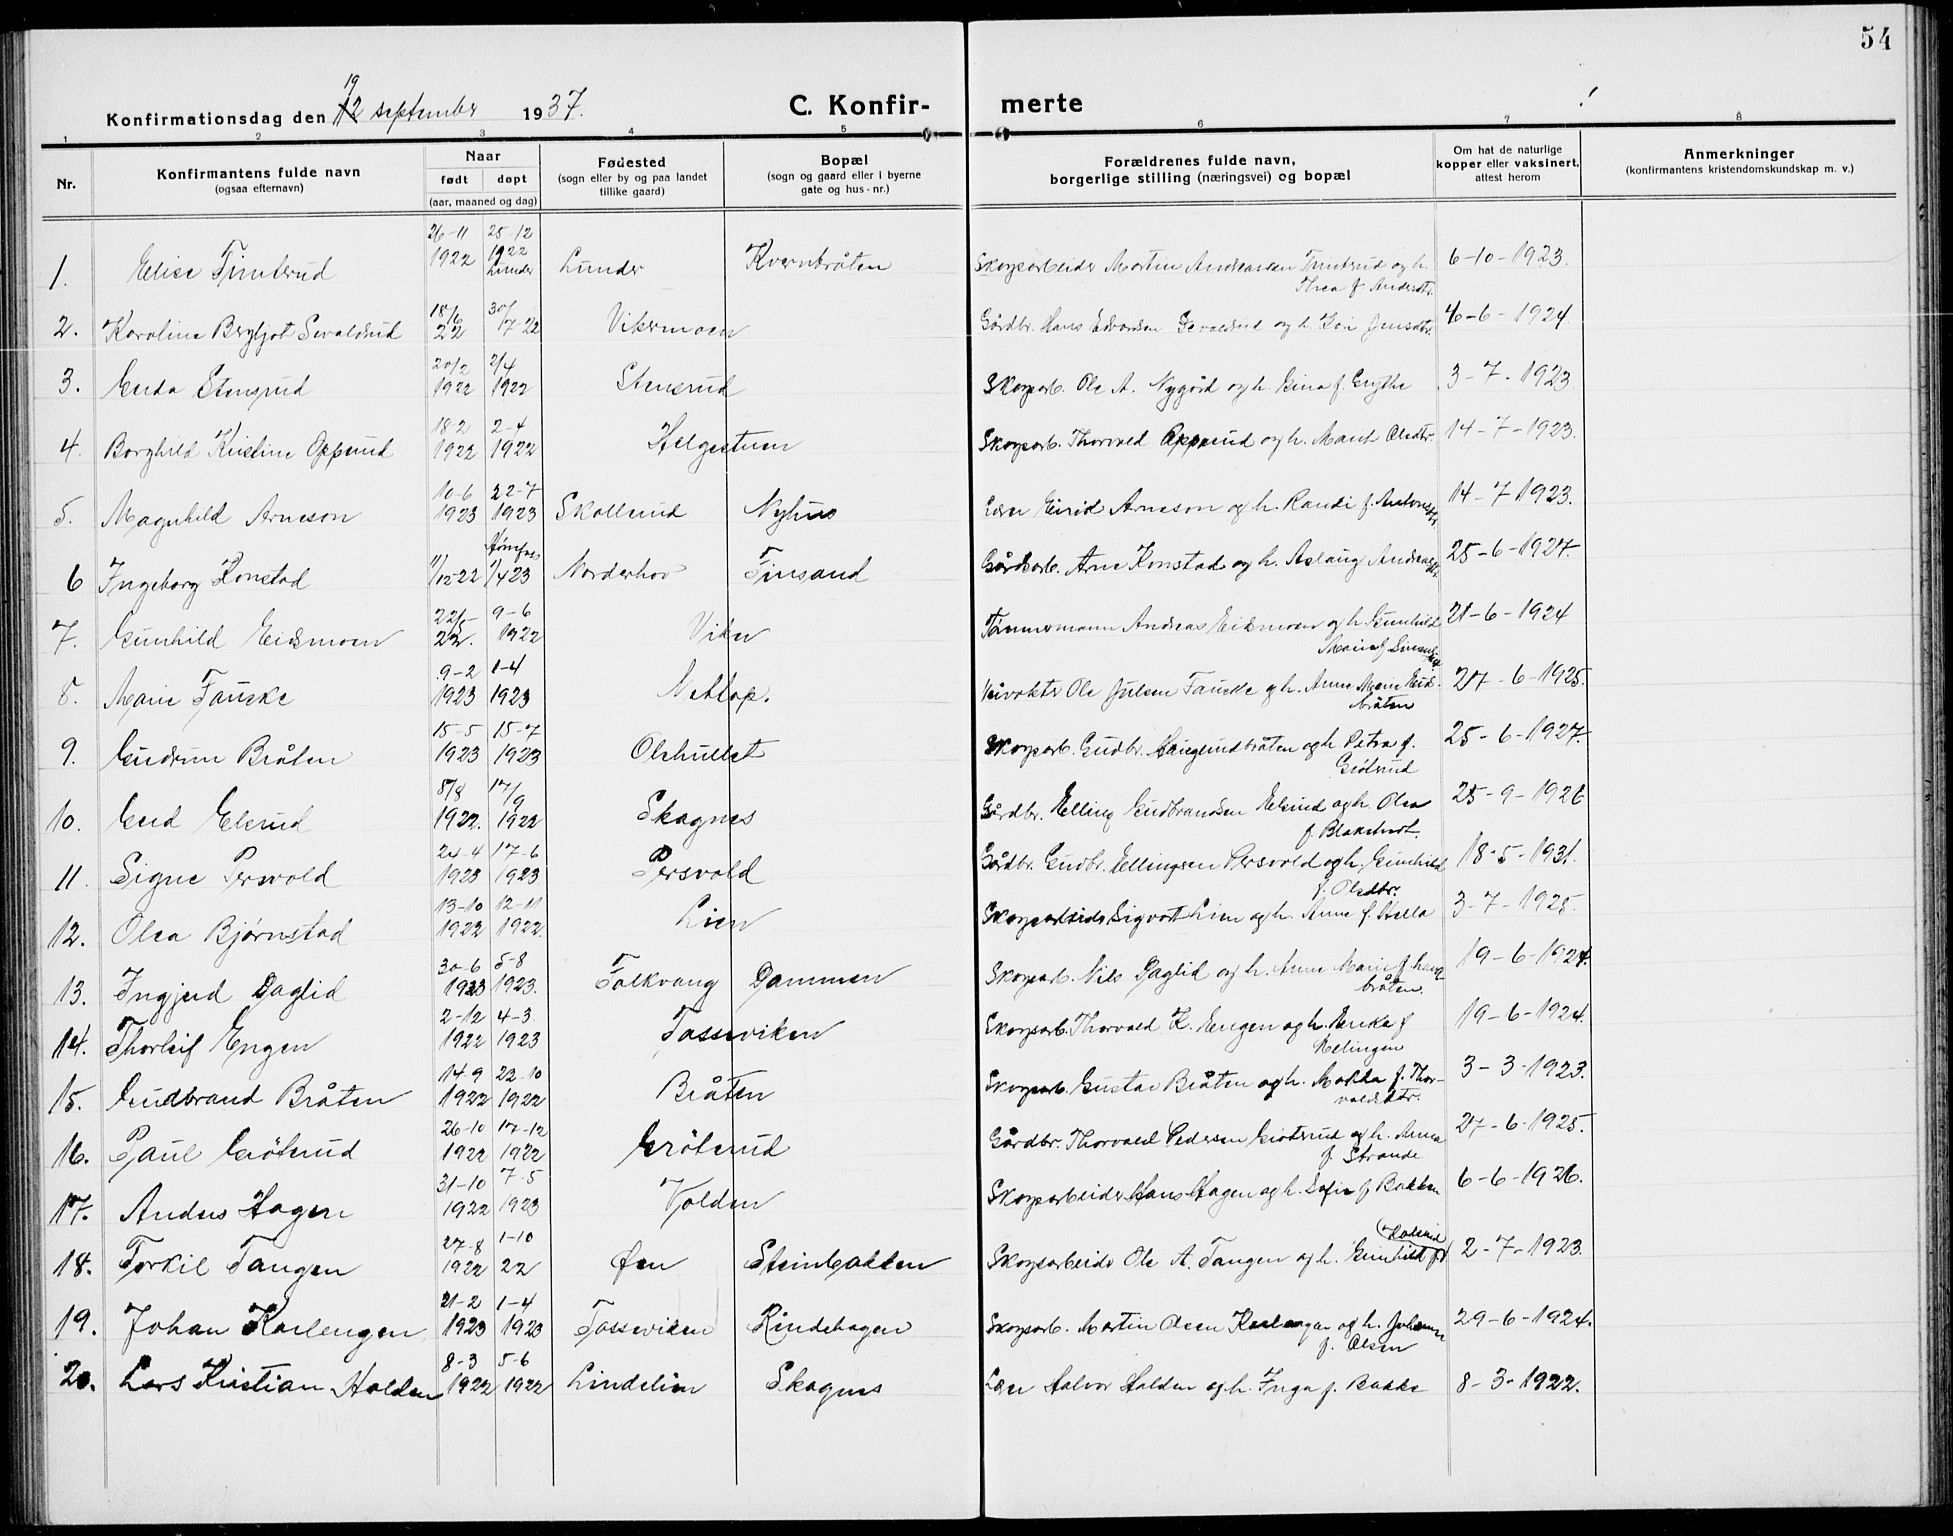 54
19
Konfirmationsdag den 12 september 1937.
C. Konfirmerte
1 2 3 4 5 6 7 8
Nr.
Konfirmantens fulde navn
(ogsaa efternavn)
Naar
født døpt
(aar, maaned og dag)
Fødested
(sogn eller by og paa landet
tillike gaard)
Bopæl
(sogn og gaard eller i byerne
gate og hus-nr.)
Forældrenes fulde navn,
borgerlige stilling (næringsvei) og bopæl
Om hat de naturlige
kopper eller vaksinert,
attest herom
Anmerkninger
(konfirmantens kristendomskundskap m. v.)
1. Elise Timterud 26-11 1922 25-12 1922 Lunder Lunder Kvernbråten Skogsarbeider Martin Andreassen Timterud og h. 6-10-1923.
Thea f. Andersdtr.
2. Karoline Bergljot Sevaldrud 18/6 22 30/7-22 Vikermoen Gårdbr. Hans Edvardsen Sevaldrud og h. Kari Jensdtr. 4-6-1924
3. Gerda Stensrud 20/2 1922 2/4 1922 Stensrud Skogsarb. Ole A. Nygård og h. Gina f. Grythe 3-7-1923.
4. Borghild Kristine Opperud 18-2 1922 2-4 1922 Helgestuen Skogsarb. Thorvald Opperud og h. Marit Olsdtr. 14-7-1923.
5. Magnhild Arneson 10-6 1923 22-7 1923 Skollerud Nyhus Lærer Eirid Arneson og h. Randi f. 14-7 1923.
6 Ingeborg Konstad 1/12-22 1/4 23 Hønefoss Norderhov Finsand Gårdsarb. Arne Konstad og h. Aslaug 25-6-1927.
7. Gunhild Eidsmoen 22/5 22. 9-6 1922 Viker Tømmermann Andreas Eidsmoen og h. Gunhild 21-6-1924
Marie f.
8. Marie Fauske 9-2 1923 1-4 1923 Nettop. Veivokter Ole Julsen Fauske og h. Anne Marie Gul- 27-6-1925.
bråten
9. Gudrun Bråten 15-5 1923 15-7 1923 Olshullet Skogsarb. Gudbr. Haugerudbråten og h. Petra f. 25-6-1927.
Grøterud
10. Gerd Elsrud 8/8 1922. 17/9 1922 Skagnes Gårdbr. Elling Gudbrandsen Elsrud og h. Olea 25-9-1926
f. Blakstvedt.
11. Signe Persvold 24-4 1923 17-6 1923 Persvold Gårdbr. Gudbr. Ellingsen Persvold og h. Gunhild 18-5-1931.
f. Olsdtr.
12. Olea Bjørnstad 13-10 1922 12-11 1922. Lien Skogsarbeider Sigvart Lien og h. Anne f. Hella 3-7-1925.
13. Ingjerd Daglid 30-6 1923 5-8 1923. Folkvang Dammen Skogsarb. Nils Daglid og h. Anne Marie f. Haug- 19-6-1924.
bråten.
14. Thorleif Engen 2-12 1922 4-3 1923 Tosseviken Skogsarb. Thorvald K. Engen og h. Erika f. 19-6-1924.
Ellingen
15. Gudbrand Bråten 14-9 1922 22-10 1922 Bråten Skogsarb. Gustav Bråten og h. Makka f. Thor- 3-3-1923.
valdsdtr.
16. Paul Grøterud 26-10 1922 17-12 1922 Grøterud Gårdbr. Thorvald Pedersen Grøterud og h. Anna 27-6-1925.
f. Strande
17. Anders Hagen 31-10 1922 7-5 1923 Volden Skogsarbeider Hans Hagen og h. Sofie f. Bakken 6-6-1926.
18. Torkil Tangen 27-8 1922 1-10 22 Øen Steinbakken Skogsarbeider Ole A. Tangen og h. Gunhild f. 2-7-1923.
19. Johan Karlengen 21-2 1923 1-4 1923 Tosseviken Rindehagen Skogsarb. Martin Olsen Karlengen og h. Johanne 29-6-1924.
f. Olsen
20. Lars Kristian Halden 8-3 1922 5-6 1922 Lindelien Skagnes Lærer Halvor Halden og h. Inga f. Bakke 8-3-1922.